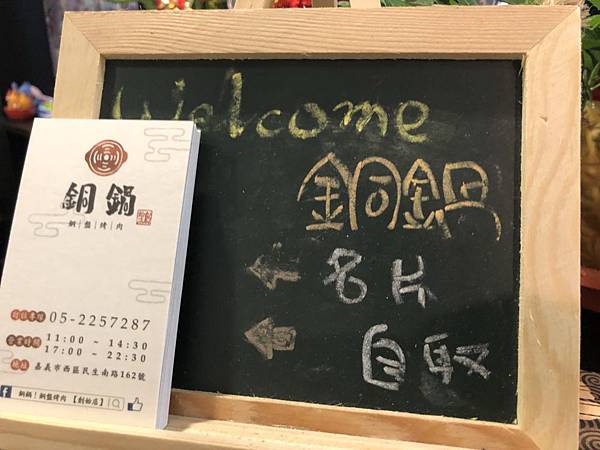 Welcome
銅鍋
名片
自取
銅鍋
銅盤烤肉
05-2257287
營業時間
11:00 ~ 14:30
17:00 ~ 22:30
嘉義市西區民生南路162號
銅鍋!銅盤烤肉【創始店】